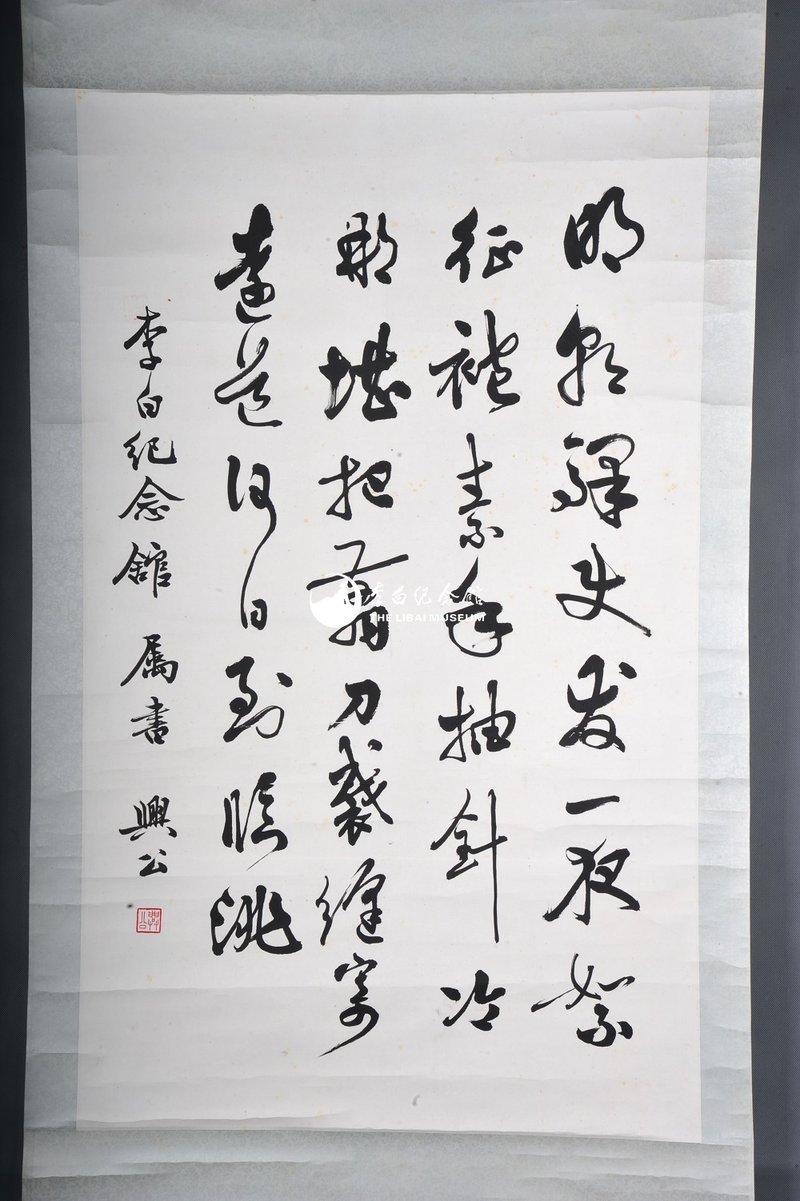 明朝驛使发一夜絮
征袍素手抽針冷
那堪把翦刀裁縫寄
遠道何日到臨洮
李白紀念館 属書 興公
李白纪念馆
THE LIBAI MUSEUM